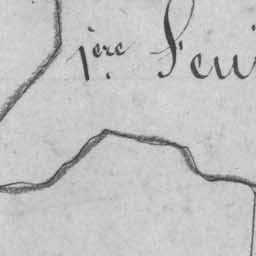 1ère Feui